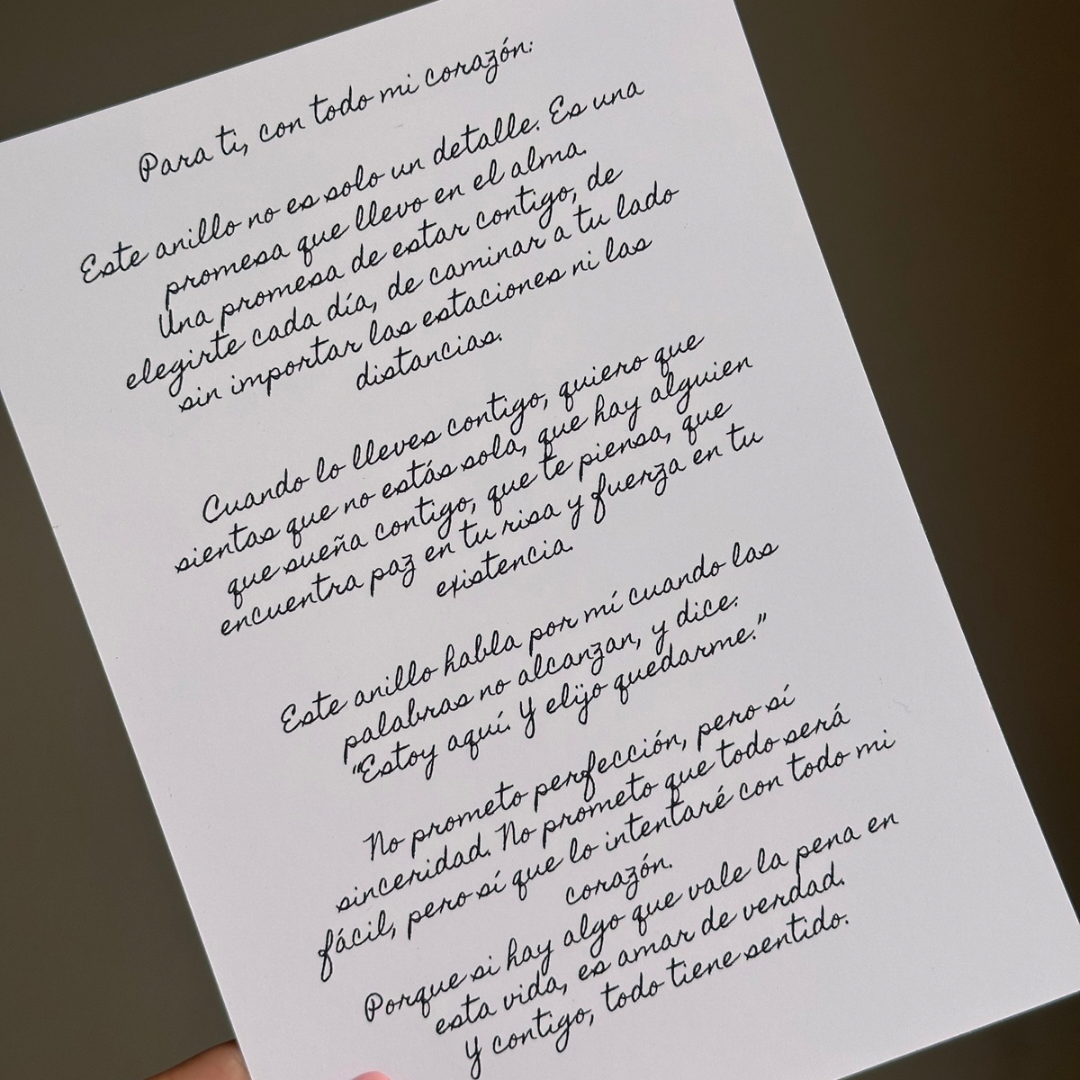 Para ti, con todo mi corazón:
Este anillo no es solo un detalle. Es una
promesa que llevo en el alma.
Una promesa de estar contigo, de
elegirte cada día, de caminar a tu lado
sin importar las estaciones ni las
distancias.
Cuando lo lleves contigo, quiero que
sientas que no estás sola, que hay alguien
que sueña contigo, que te piensa, que
encuentra paz en tu risa y fuerza en tu
existencia.
Este anillo habla por mí cuando las
palabras no alcanzan, y dice:
"Estoy aquí. Y elijo quedarme."
No prometo perfección, pero sí
sinceridad. No prometo que todo será
fácil, pero sí que lo intentaré con todo mi
corazón.
Porque si hay algo que vale la pena en
esta vida, es amar de verdad.
Y contigo, todo tiene sentido.